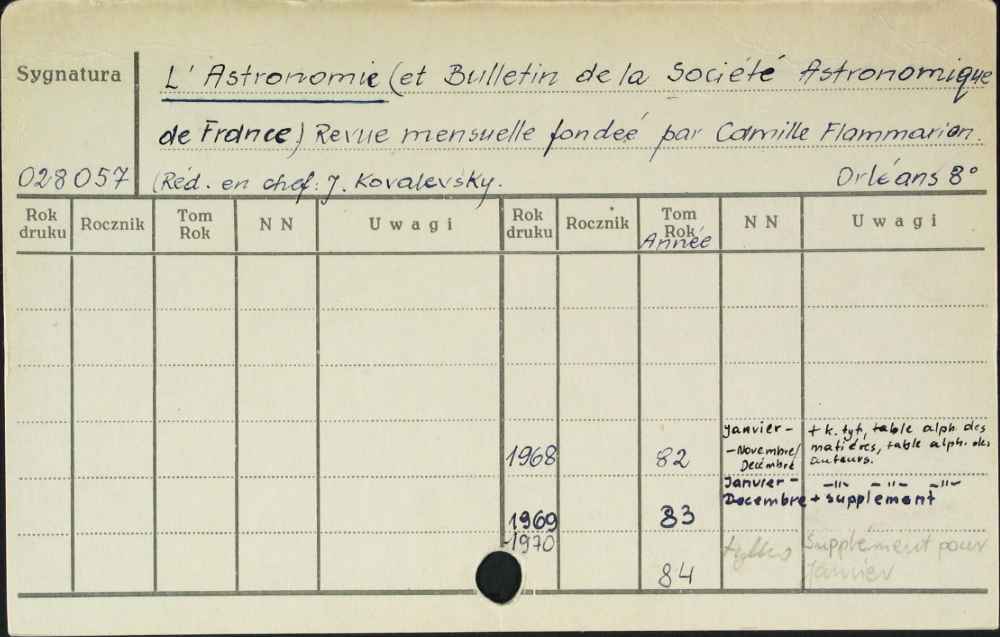 Sygnatura
L'Astronomie (et Bulletin de la Société Astronomique
de France) Revue mensuelle fondeé par Camille Flammarion.
028057 (Réd. en chef: J. Kovalevsky. Orléans 8°
Rok druku Rocznik Tom Rok N N Uwagi Rok druku Rocznik Tom Rok Année N N Uwagi
1968 82 Janvier - - Novembre/ Decémbre + k. tyt, table alph. des matières, table alph. des auteurs.
1969 83 Janvier - Decembre -"- -"- -"- + supplement
-1970 84 tylko Supplément pour Janvier